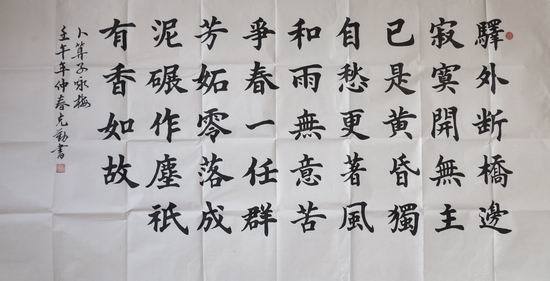 驛外断橋邊
寂寞開無主
已是黄昏獨
自愁更著風
和雨無意苦
爭春一任群
芳妬零落成
泥碾作塵祇
有香如故
卜筭子咏梅
壬午年仲春克勤書